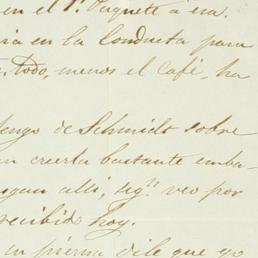 en el 1.º Paquete á esa.
ia en la Conducta para
, todo, menos el Café, ha
tengo de Schmidt sobre
an cuerta bastante emba-
gan alli, sg.ⁿ veo por
recibido hoy.
en pierna dile que yo